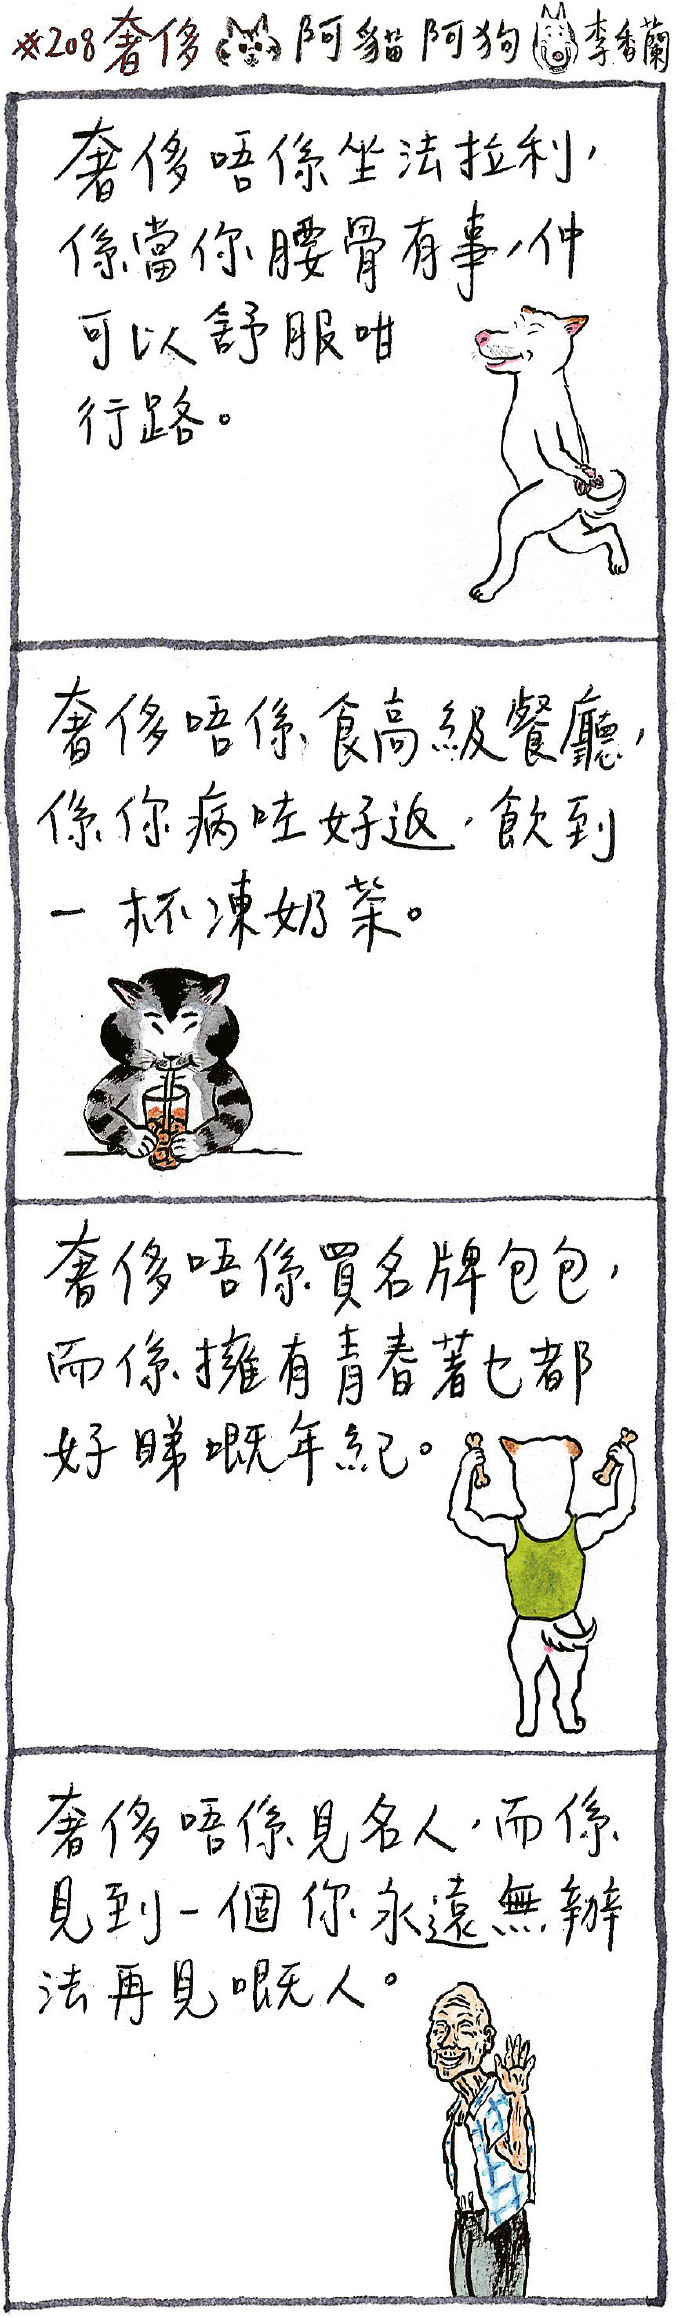 #208奢侈 阿貓阿狗 李香蘭
奢侈唔係坐法拉利，
係當你腰骨有事，仲
可以舒服咁
行路。
奢侈唔係食高級餐廳，
係你病咗好返，飲到
一杯凍奶茶。
奢侈唔係買名牌包包，
而係擁有青春著乜都
好睇嘅年紀。
奢侈唔係見名人，而係
見到一個你永遠無辦
法再見嘅人。